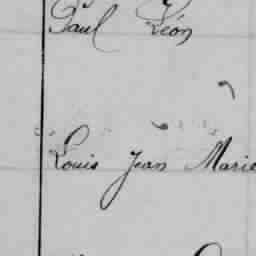 Paul Léon
Louis Jean Marie